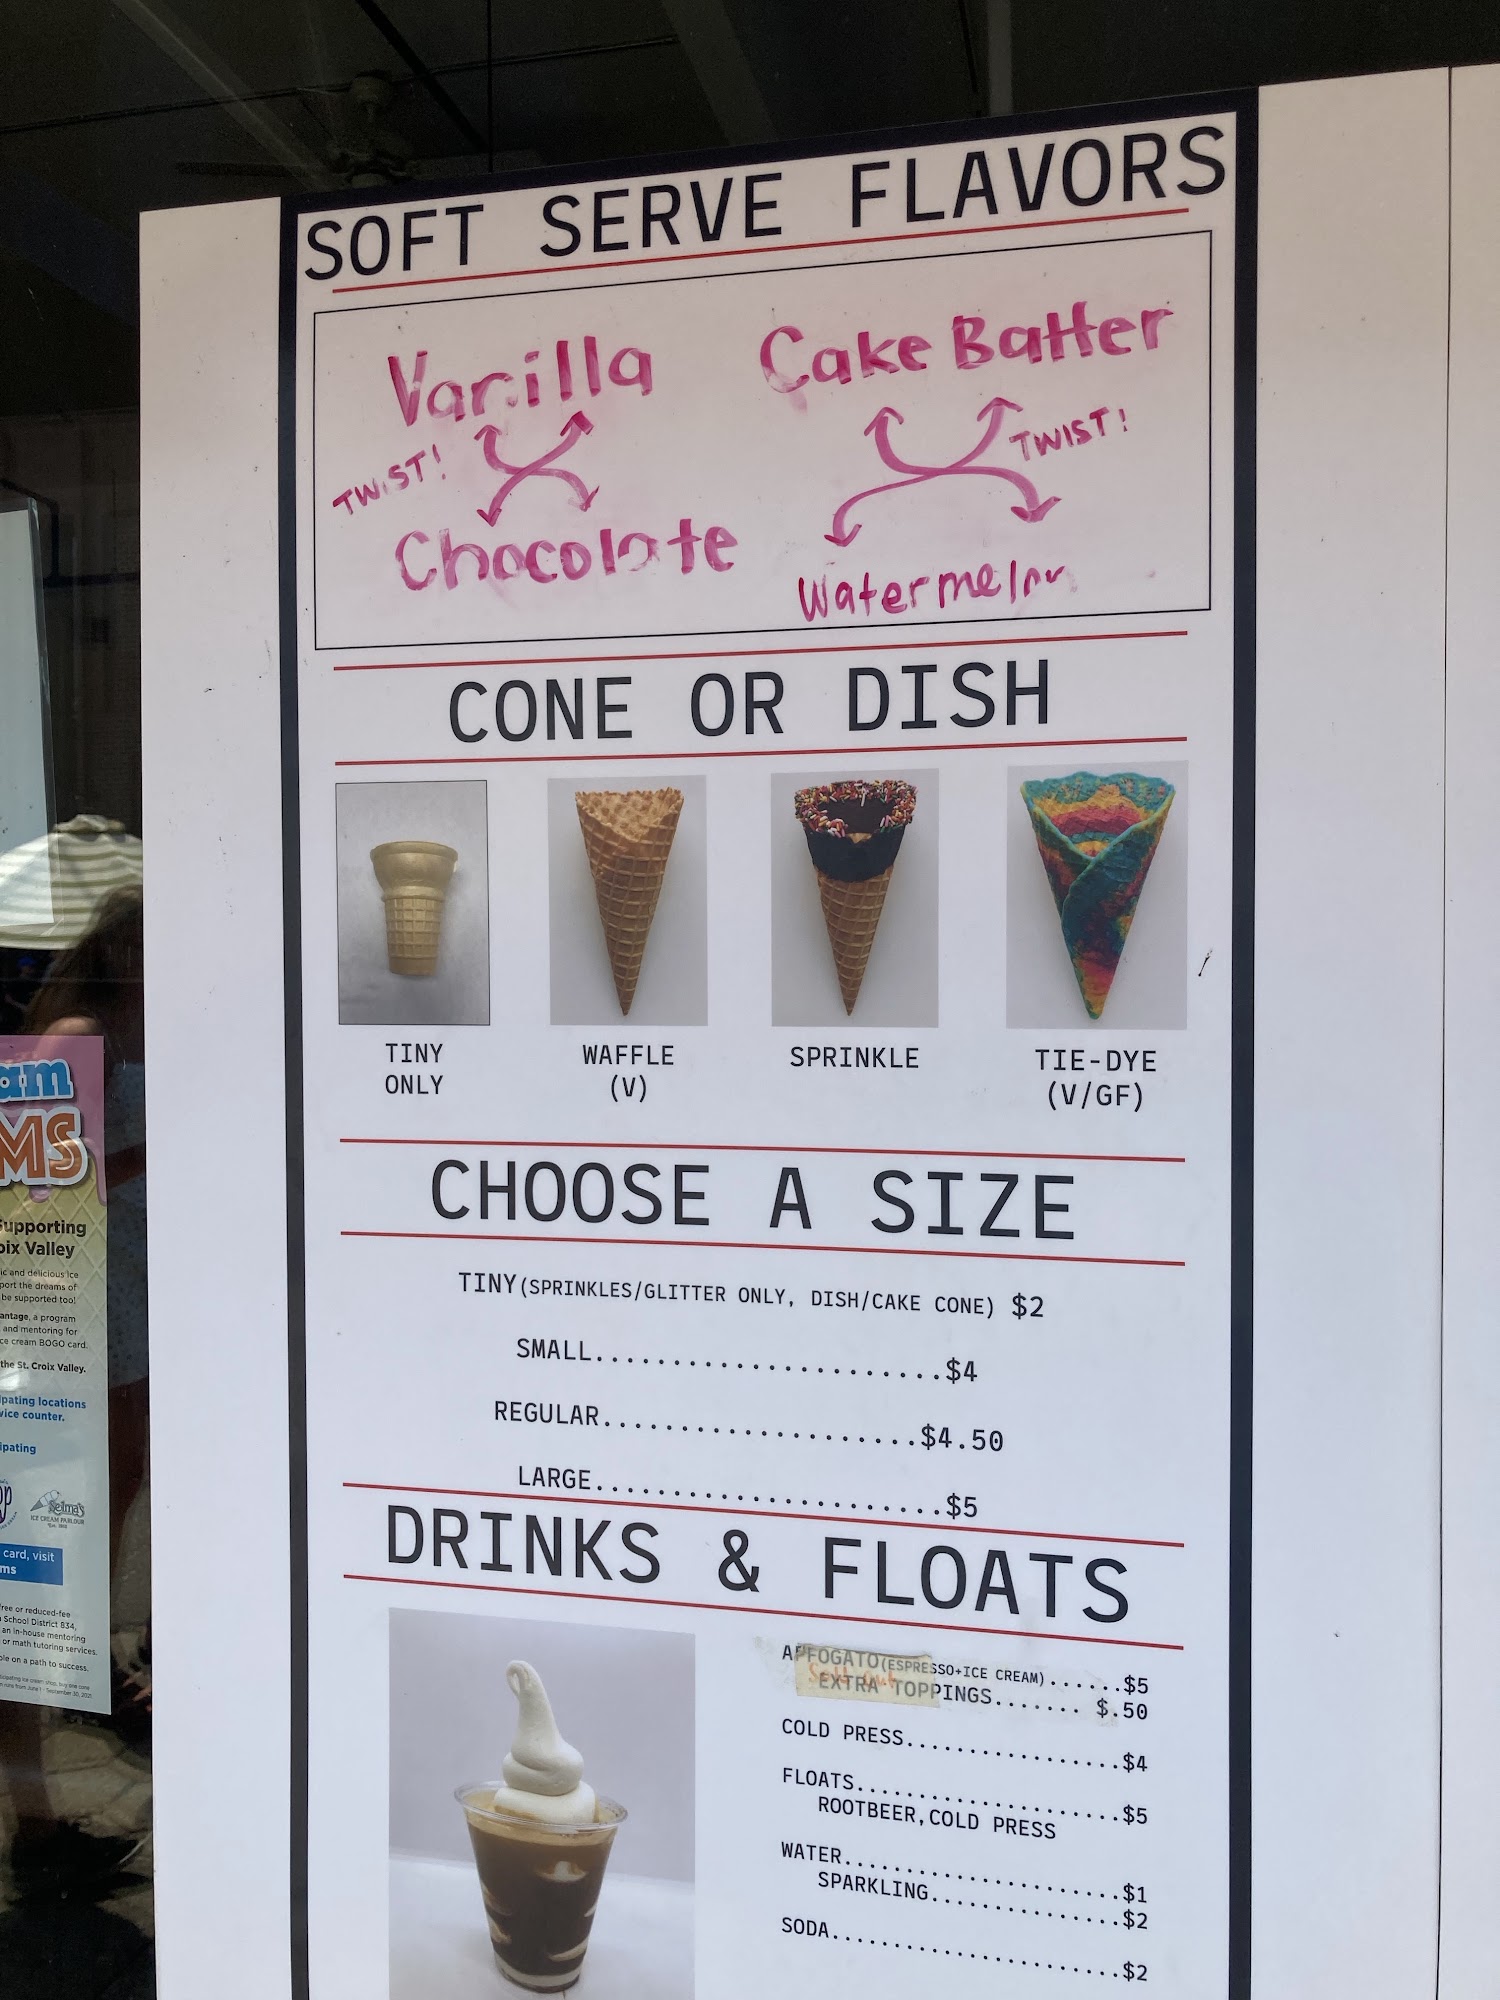 SOFT SERVE FLAVORS
Vanilla
Cake Batter
TWIST!
TWIST!
Chocolate
Watermelon
CONE OR DISH
TINY
ONLY
WAFFLE
(V)
SPRINKLE
TIE-DYE
(V/GF)
CHOOSE A SIZE
TINY(SPRINKLES/GLITTER ONLY, DISH/CAKE CONE) $2
SMALL......................$4
REGULAR....................$4.50
LARGE......................$5
DRINKS & FLOATS
AFFOGATO(ESPRESSO+ICE CREAM)......$5
Sold out
EXTRA TOPPINGS....... $.50
COLD PRESS..................$4
FLOATS......................$5
ROOTBEER,COLD PRESS
WATER.......................$1
SPARKLING................$2
SODA........................$2
am
MS
Supporting
oix Valley
ic and delicious ice
port the dreams of
be supported too!
antage, a program
and mentoring for
ce cream BOGO card.
the St. Croix Valley.
ipating locations
vice counter.
cipating
op
Selma's
ICE CREAM PARLOUR
card, visit
ms
free or reduced-fee
School District 834,
an in-house mentoring
or math tutoring services.
ple on a path to success.